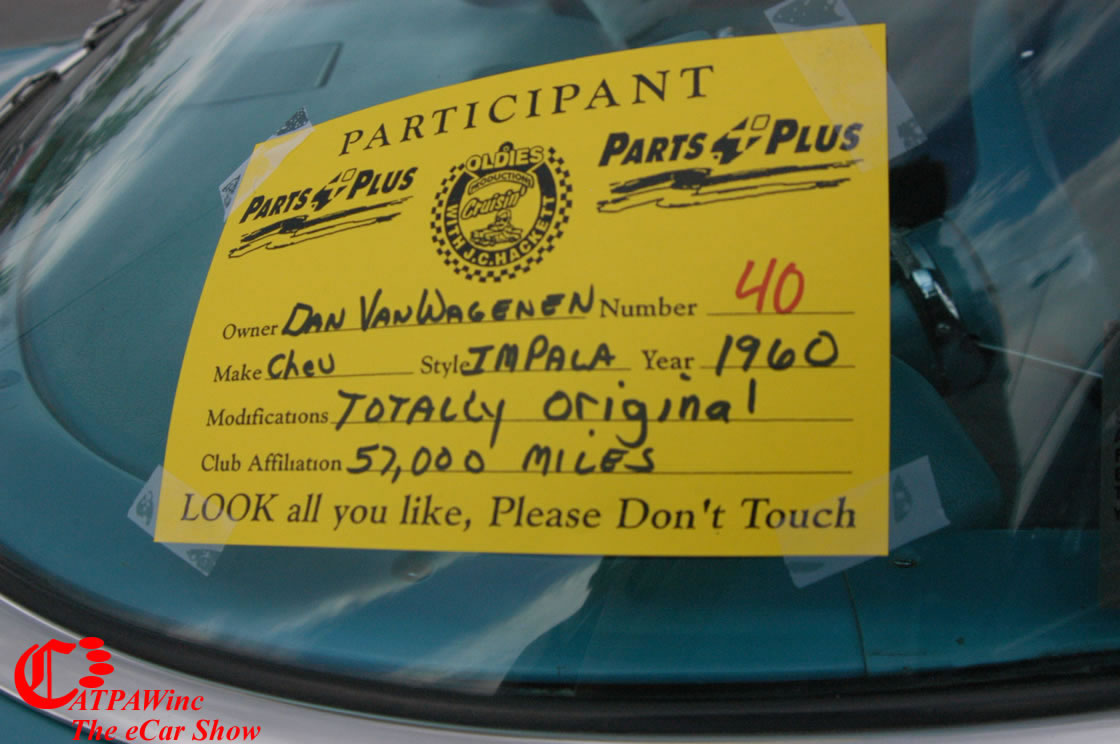 PARTICIPANT
PARTS PLUS
OLDIES
PRODUCTIONS
Cruisin'
WITH J.C. HACKETT
PARTS PLUS
Owner DAN VANWAGENEN Number 40
Make Chev Style IMPALA Year 1960
Modifications TOTALLY original
Club Affiliation 57,000 MILES
LOOK all you like, Please Don't Touch
CATPAWinc
The eCar Show